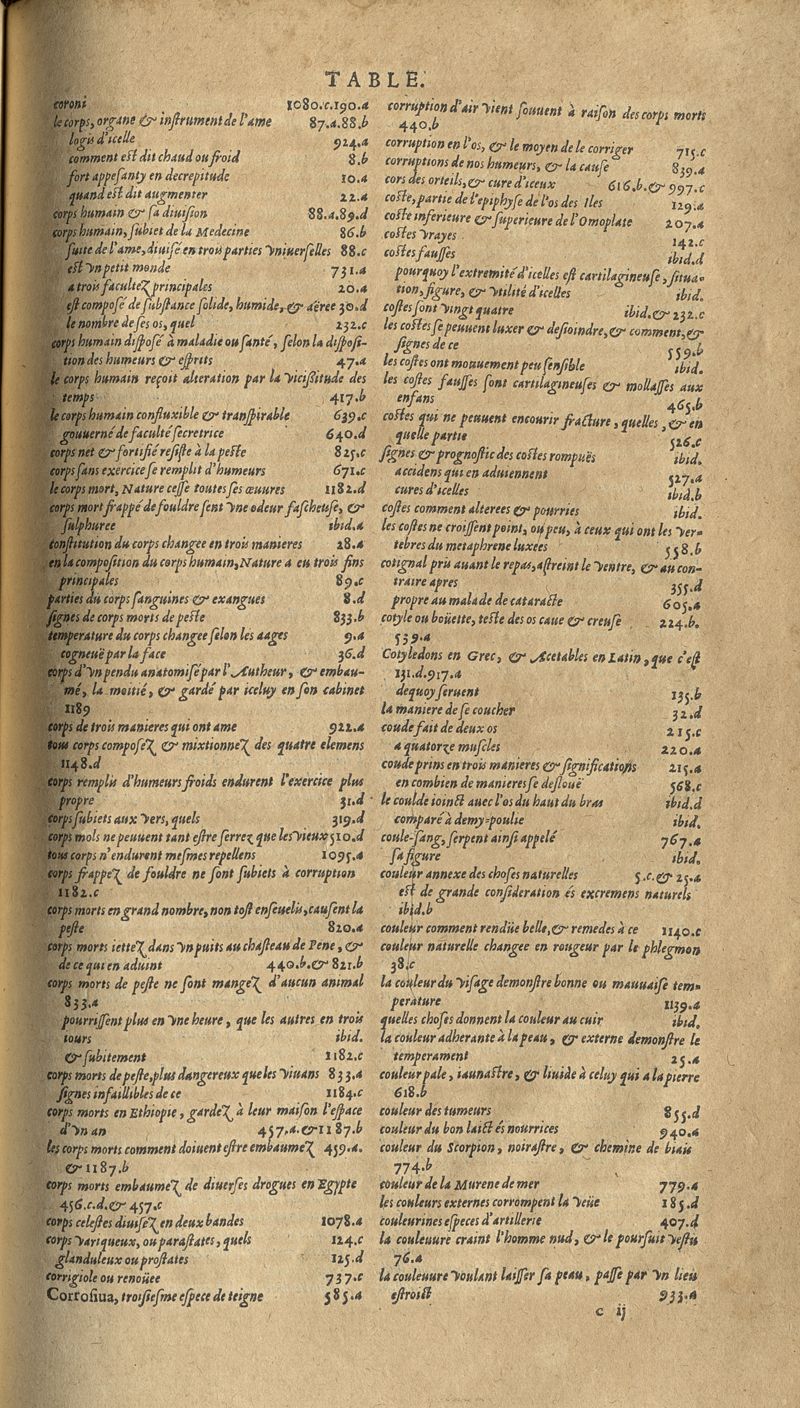 TABLE.
coroni 1080.c.190.a
le corps, organe & inſtrument de l'ame 87.a.88.b
logis d'icelle 924.a
comment eſt dit chaud ou froid 8.b
fort appeſanty en decrepitude 10.a
quand eſt dit augmenter 22.a
corps humain & ſa diuiſion 88.a.89.d
corps humain, ſubiet de la Medecine 86.b
ſuite de l'ame, diuiſé en trois parties vniuerſelles 88.c
eſt vn petit monde 731.a
a trois facultez principales 20.a
eſt compoſé de ſubſtance ſolide, humide, & aëree 30.d
le nombre de ſes os, quel 232.c
corps humain diſpoſé à maladie ou ſanté, ſelon la diſpoſi-
tion des humeurs & eſprits 47.a
le corps humain reçoit alteration par la viciſſitude des
temps 417.b
le corps humain confluxible & tranſpirable 639.c
gouuerné de faculté ſecretrice 640.d
corps net & fortifié reſiſte à la peſte 825.c
corps ſans exercice ſe remplit d'humeurs 671.c
le corps mort, Nature ceſſe toutes ſes œuures 1182.d
corps mort frappé de fouldre ſent vne odeur faſcheuſe, &
ſulphuree ibid.a
conſtitution du corps changee en trois manieres 28.a
en la compoſition du corps humain, Nature a eu trois fins
principales 89.c
parties du corps ſanguines & exangues 8.d
ſignes de corps morts de peſte 833.b
temperature du corps changee ſelon les aages 9.a
cogneuë par la face 36.d
corps d'vn pendu anatomiſé par l'Autheur, & embau-
mé, la moitié, & gardé par iceluy en ſon cabinet
1189
corps de trois manieres qui ont ame 922.a
tous corps compoſez & mixtionnez des quatre elemens
1148.d
corps remplis d'humeurs froids endurent l'exercice plus
propre 31.d
corps ſubiets aux vers, quels 319.d
corps mols ne peuuent tant eſtre ſerrez que les vieux 510.d
tous corps n'endurent meſmes repellens 1095.a
corps frappez de fouldre ne ſont ſubiets à corruption
1182.c
corps morts en grand nombre, non toſt enſeuelis, cauſent la
peſte 820.a
corps morts iettez dans vn puits au chaſteau de Pene, &
de ce qui en aduint 440.b.& 821.b
corps morts de peſte ne ſont mangez d'aucun animal
833.a
pourriſſent plus en vne heure, que les autres en trois
iours ibid.
& ſubitement 1182.c
corps morts de peſte, plus dangereux que les viuans 833.a
ſignes infaillibles de ce 1184.c
corps morts en Ethiopie, gardez à leur maiſon l'eſpace
d'vn an 457.a.& 1187.b
les corps morts comment doiuent eſtre embaumez 459.a.
& 1187.b
corps morts embaumez de diuerſes drogues en Egypte
456.c.d.& 457.c
corps celeſtes diuiſez en deux bandes 1078.a
corps variqueux, ou paraſtates, quels 124.c
glanduleux ou proſtates 125.d
corrigiole ou renoüee 737.c
Corroſiua, troiſieſme eſpece de teigne 585.a
corruption d'air vient ſouuent à raiſon des corps morts
440.b
corruption en l'os, & le moyen de le corriger 715.c
corruptions de nos humeurs, & la cauſe 839.a
cors des orteils, & cure d'iceux 616.b.& 997.c
coſte, partie de l'epiphyſe de l'os des Iles 129.a
coſte inferieure & ſuperieure de l'Omoplate 207.a
coſtes vrayes 142.c
coſtes fauſſes ibid.d
pourquoy l'extremité d'icelles eſt cartilagineuſe, ſitua-
tion, figure, & vtilité d'icelles ibid.
coſtes ſont vingt quatre ibid.& 232.c
les coſtes ſe peuuent luxer & desioindre, & comment, &
ſignes de ce 559.b
les coſtes ont mouuement peu ſenſible ibid.
les coſtes fauſſes ſont cartilagineuſes & mollaſſes aux
enfans 465.b
coſtes qui ne peuuent encourir fracture, quelles, & en
quelle partie 526.c
ſignes & prognoſtic des coſtes rompuës ibid.
accidens qui en aduiennent 527.a
cures d'icelles ibid.b
coſtes comment alterees & pourries ibid.
les coſtes ne croiſſent point, ou peu, à ceux qui ont les ver-
tebres du metaphrene luxees 558.b
cotignal pris auant le repas, aſtreint le ventre, & au con-
traire apres 355.d
propre au malade de cataracte 605.a
cotyle ou boüette, teſte des os caue & creuſe 224.b.
539.a
Cotyledons en Grec, & Acetables en Latin, que c'eſt
131.d.917.a
dequoy ſeruent 135.b
la maniere de ſe coucher 32.d
coude fait de deux os 215.c
a quatorze muſcles 220.a
coude prins en trois manieres & ſignifications 215.a
en combien de manieres ſe deſlouë 568.c
le coulde ioinct auec l'os du haut du bras ibid.d
comparé à demy-poulie ibid.
coule-ſang, ſerpent ainſi appelé 767.a
ſa figure ibid.
couleur annexe des choſes naturelles 5.c.& 25.a
eſt de grande conſideration és excremens naturels
ibid.b
couleur comment rendüe belle, & remedes à ce 1140.c
couleur naturelle changee en rougeur par le phlegmon
38.c
la couleur du viſage demonſtre bonne ou mauuaiſe tem-
perature 1139.a
quelles choſes donnent la couleur au cuir ibid.
la couleur adherante à la peau, & externe demonſtre le
temperament 25.a
couleur pale, iaunaſtre, & liuide à celuy qui a la pierre
618.b
couleur des tumeurs 855.d
couleur du bon laict és nourrices 940.a
couleur du Scorpion, noiraſtre, & chemine de biais
774.b
couleur de la Murene de mer 779.a
les couleurs externes corrompent la veüe 185.d
couleurines eſpeces d'artillerie 407.d
la couleuure craint l'homme nud, & le pourſuit veſtu
76.a
la couleuure voulant laiſſer ſa peau, paſſe par vn lieu
eſtroict 933.a
c ij